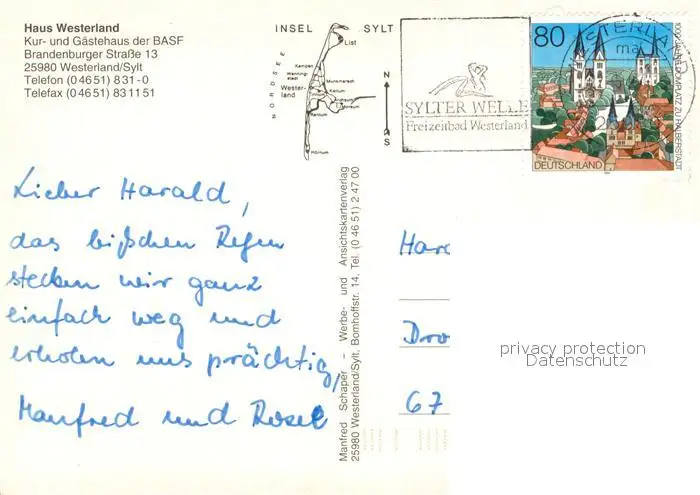 Haus Westerland
Kur- und Gästehaus der BASF
Brandenburger Straße 13
25980 Westerland/Sylt
Telefon (0 46 51) 8 31-0
Telefax (0 46 51) 83 11 51
INSEL SYLT
NORDSEE
List
Kampen
Westerland
Rantum
Hörnum
N
S
SYLTER WELLE
Freizeitbad Westerland
WESTERLAND
80
1000 JAHRE DOMPLATZ ZU HALBERSTADT
DEUTSCHLAND
Lieber Harald,
das bißchen Regen
stecken wir ganz
einfach weg und
erholen uns prächtig,
Manfred und Rosel
Manfred Schaper – Werbe- und Ansichtskartenverlag
25980 Westerland/Sylt, Bomhoffstr. 14, Tel. (0 46 51) 2 47 00
Har
Dro
67
privacy protection
Datenschutz